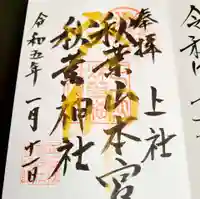 奉拝
上社
秋葉山本宮
秋葉神社
令和五年一月十一日